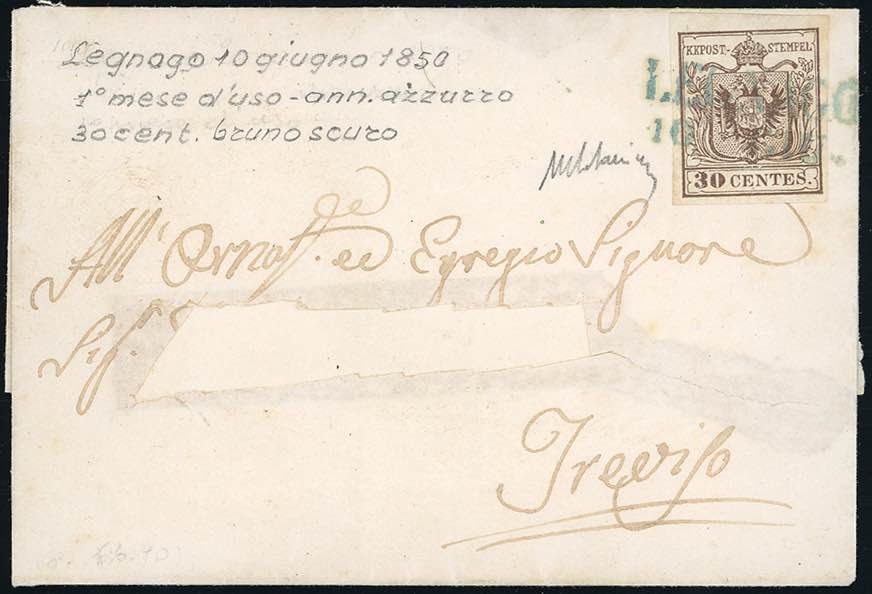 Legnago 10 giugno 1850
1° mese d'uso - ann. azzurro
30 cent. bruno scuro
KKPOST-STEMPEL
30 CENTES.
All' Ornat. ed Egregio Signore
Sig.
Treviso